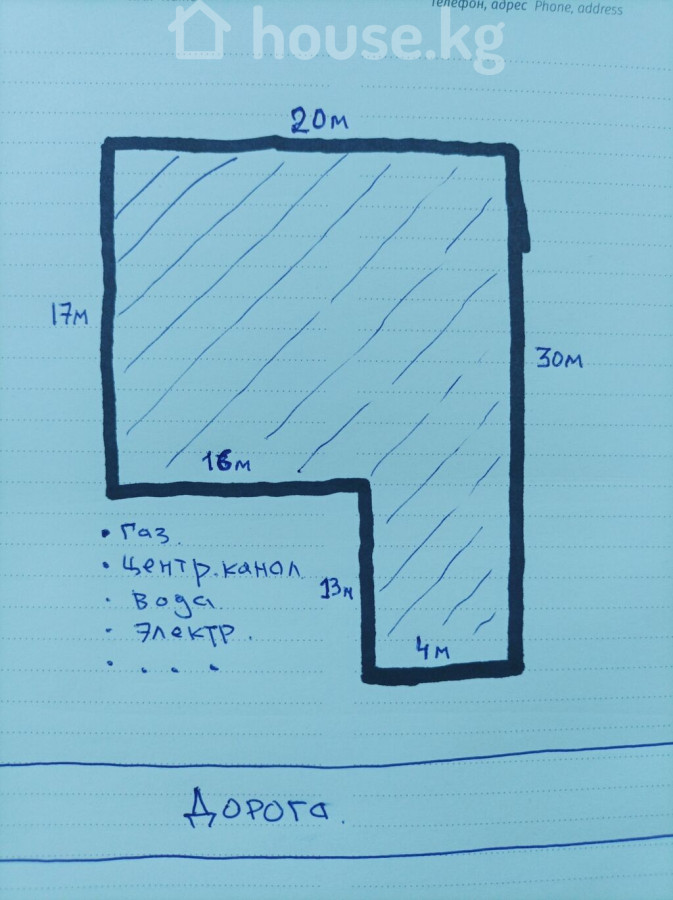 Телефон, адрес Phone, address
house.kg
20м
17м
30м
16м
• Газ.
• Центр.канол
· Вода.
· Электр.
13м
4м
· . . .
Дорога.